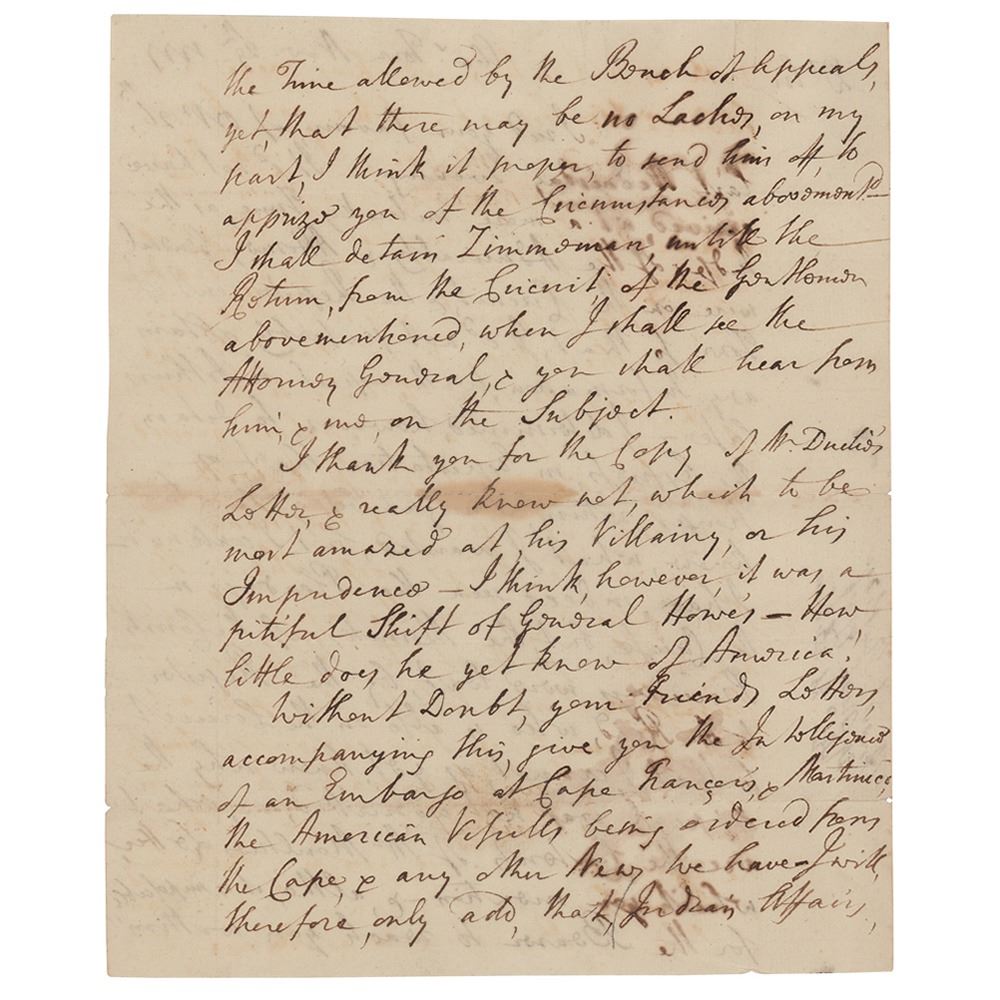 the Time allowed by the Bench of Appeals,
yet, that there may be no Laches, on my
part, I think it proper, to send him off, to
apprize you of the Circumstances abovement.d—
I shall detain Zimmeman, untill the
Return, from the Circuit, of the Gentlemen
abovementioned, when I shall see the
Attorney General, & you shall hear from
him, & me, on the Subject.
I thank you for the Copy of Mr. Duchés
Letter, & really know not, which to be
most amazed at, his Villainy, or his
Impudence — I think, however, it was a
pitiful Shift of General Howe's — How
little does he yet know of America!
Without Doubt, your Friends Letters,
accompanying this, give you the Intelligence
of an Embargo at Cape Francois, & Martineco,
the American Vessells being ordered from
the Cape, & any other News we have — I will,
therefore, only add, that, Indian Affairs,